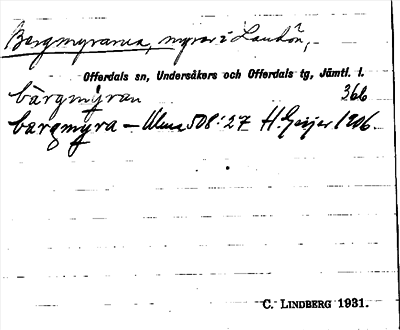 Bergmyrarna, myrar i Landön,
Offerdals sn, Undersåkers och Offerdals tg, Jämtl. l.
bärgmýran 366
bærgmyra – Ulma 508:27 H. Geijer 1906.
C. LINDBERG 1931.